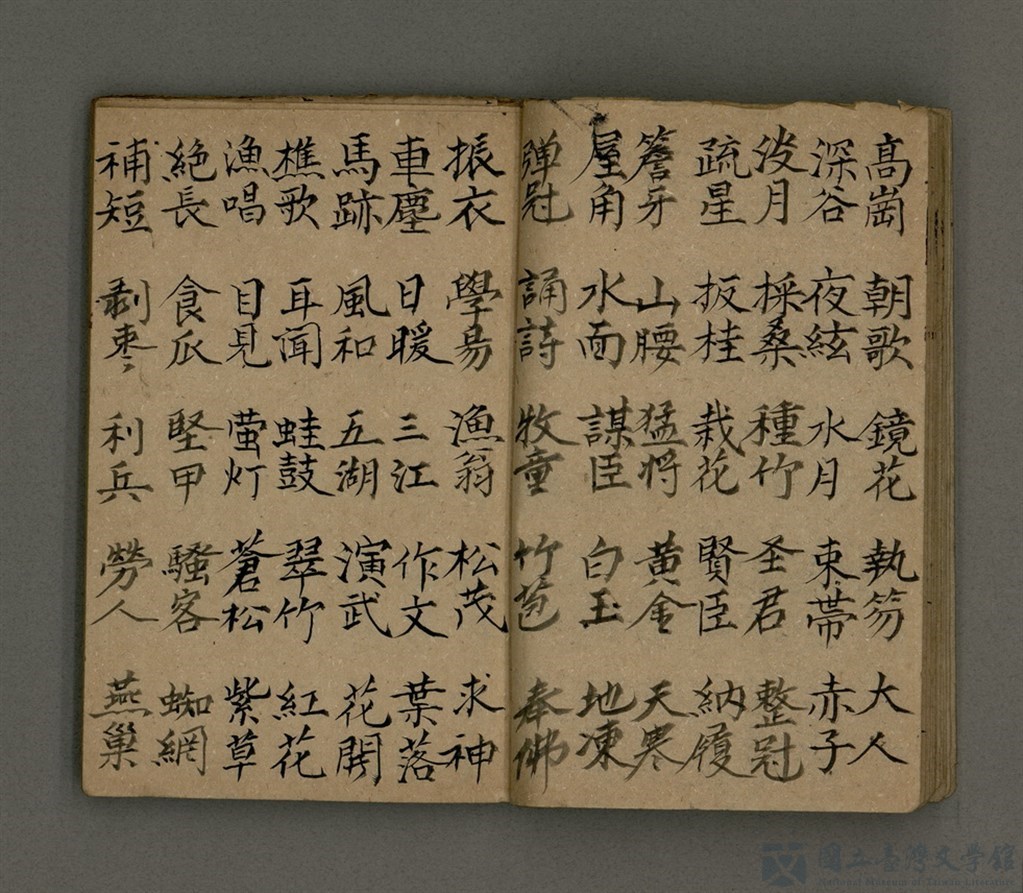 高崗 朝歌 鏡花 執笏 大人
深谷 夜絃 水月 束帶 赤子
淡月 採桑 種竹 圣君 整冠
疏星 扳桂 栽花 賢臣 納履
簷牙 山腰 猛將 黄金 天寒
屋角 水面 謀臣 白玉 地凍
弹冠 誦詩 牧童 竹苞 奉佛
振衣 學易 漁翁 松茂 求神
車塵 日暖 三江 作文 葉落
馬跡 風和 五湖 演武 花開
樵歌 耳聞 蛙鼓 翠竹 紅花
漁唱 目見 萤灯 蒼松 紫草
絕長 食瓜 堅甲 騷客 蜘網
補短 剥枣 利兵 勞人 燕巢
國立臺灣文學館
National Museum of Taiwan Literature